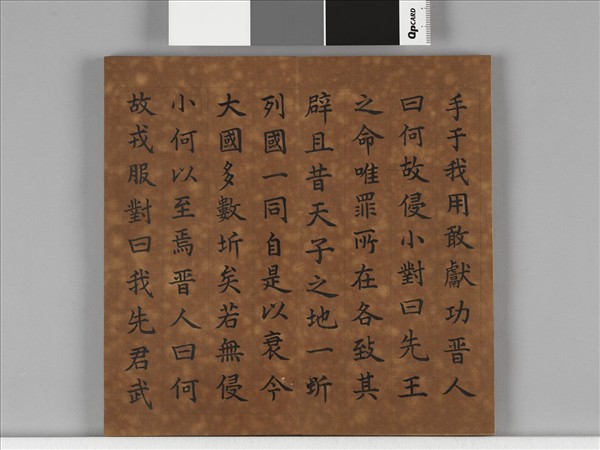 手于我用敢獻功晋人
曰何故侵小對曰先王
之命唯罪所在各致其
辟且昔天子之地一圻
列國一同自是以衰今
大國多數圻矣若無侵
小何以至焉晋人曰何
故戎服對曰我先君武
QPCARD